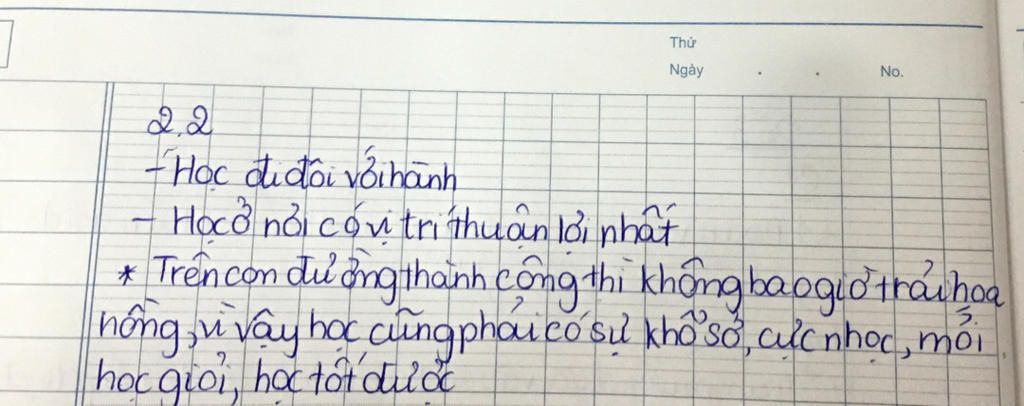 Thứ
Ngày . . No.
2.2
- Học đi đôi với hành
- Học ở nơi có vị trí thuận lợi nhất
* Trên con đường thành công thì không bao giờ trải hoa
hồng, vì vậy học cũng phải có sự khổ sở, cực nhọc, mới
học giỏi, học tốt được